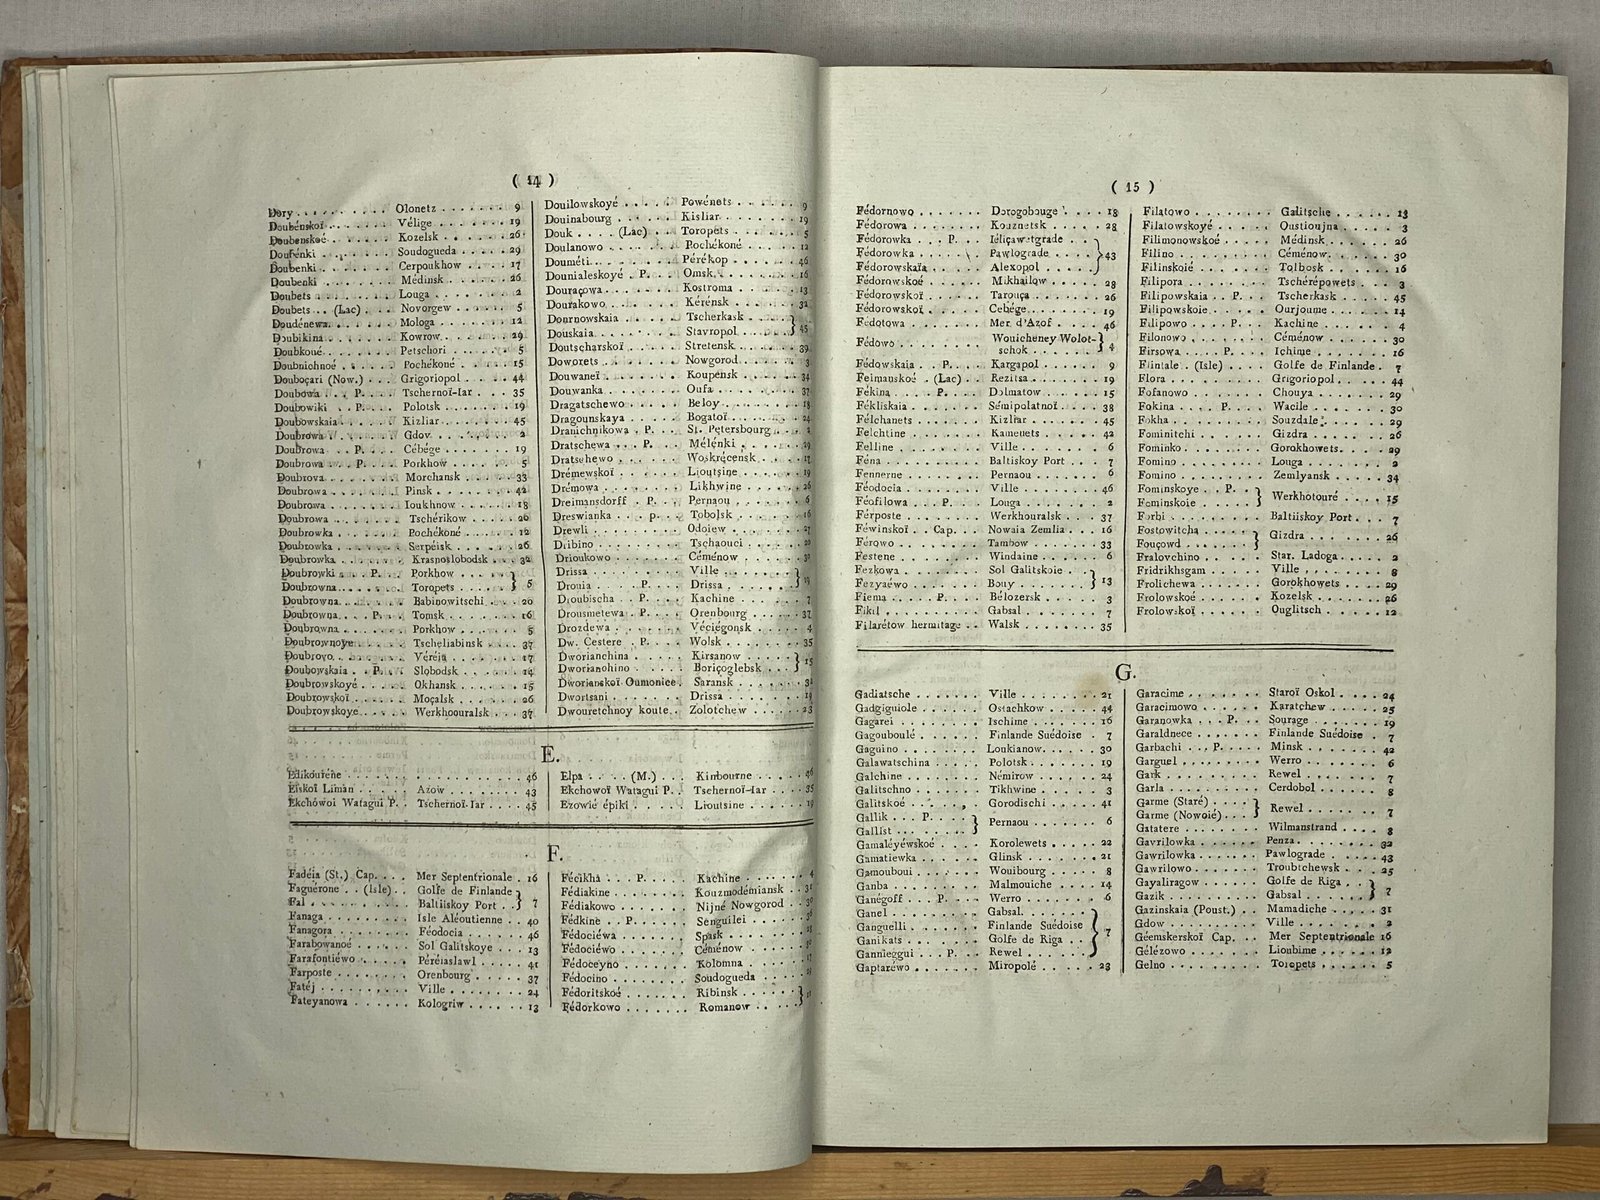 ( 14 )
Dory Olonetz 9
Doubénskoï Vélige 19
Doubenskoé Kozelsk 26
Doubénki Soudogueda 29
Doubenki Cerpoukhow 17
Doubenki Médinsk 26
Doubets Louga 2
Doubets (Lac) Novorgew 5
Doudénewa Mologa 12
Doubikina Kowrow 29
Doubkoué Petschori 5
Doubnichnoé Pochékoné 15
Douboçari (Now.) Grigoriopol 44
Doubowa P. Tschernoï-Iar 35
Doubowiki P. Polotsk 19
Doubowskaia Kizliar 45
Doubrowa Gdov 2
Doubrowa P. Cébége 19
Doubrowa P. Porkhow 5
Doubrova Morchansk 33
Doubrowa Pinsk 42
Doubrowa Ioukhnow 18
Doubrowa Tschérikow 20
Doubrowka Pochékoné 12
Doubrowka Serpéisk 26
Doubrowka Krasnoslobodsk 32
Doubrowki P. Porkhow
Doubrowna Toropets } 5
Doubrowna Babinowitschi 20
Doubrowna P. Tomsk 16
Doubrowna Porkhow 5
Doubrownoye Tscheliabinsk 37
Doubrovo Véréja 17
Doubowskaia P. Slobodsk 14
Doubrowskoyé Okhansk 15
Doubrowskoï Moçalsk 26
Doubrowskoye Werkhoouralsk 37
Douilowskoyé Powénets 9
Douinabourg Kisliar 19
Douk (Lac) Toropets 5
Doulanowo Pochékoné 12
Douméti Pérékop 46
Dounialeskoyé P. Omsk 16
Douraçowa Kostroma 13
Dourakowo Kérénsk 32
Dournowskaia Tscherkask
Douskaia Stavropol } 45
Doutscharskoï Stretensk 39
Doworets Nowgorod 3
Douwaneï Koupensk 34
Douwanka Oufa 37
Dragatschewo Beloy 18
Dragounskaya Bogatoï 24
Dranichnikowa P. St. Petersbourg 2
Dratschewa P. Mélénki 29
Dratschewo Woskrécensk 17
Drémewskoï Lioutsine 19
Drémowa Likhwine 26
Dreimansdorff P. Pernaou 6
Dreswianka P. Tobolsk 16
Drewli Odoiew 27
Dribino Tschaouci 20
Drioukowo Céménow 30
Drissa Ville
Drouia P. Drissa } 19
Droubischa P. Kachine 7
Drousmetewa P. Orenbourg 37
Drozdewa Véciégonsk 4
Dw. Cestere P. Wolsk 35
Dworianchina Kirsanow
Dworianohino Boriçoglebsk } 15
Dworianskoï Oumonice Saransk 32
Dwortsani Drissa 19
Dwouretchnoy koute Zolotchew 23
E.
Edikouréne 46
Eiskoï Liman Azow 43
Ekchówoi Watagui P. Tschernoï-Iar 45
Elpa (M.) Kinbourne 46
Ekchowoï Watagui P. Tschernoï-Iar 35
Ezowié épiki Lioutsine 19
F.
Fadéia (St.) Cap. Mer Septentrionale 16
Faguérone (Isle) Golfe de Finlande
Fal Baltiiskoy Port } 7
Fanaga Isle Aléoutienne 40
Fanagora Féodocia 46
Farabowanoé Sol Galitskoye 13
Farafontiéwo Péréiaslawl 41
Farposte Orenbourg 37
Fatéj Ville 24
Fateyanowa Kologriw 13
Fécikha P. Kachine 4
Fédiakine Kouzmodémiansk 31
Fédiakowo Nijné Nowgorod 30
Fédkine P. Senguilei 36
Fédociéwa Spask
Fédociéwo Céménow
Fédoceyno Kolomna 17
Fédocino Soudogueda
Fédoritskoé Ribinsk
Fédorkowo Romanow
( 15 )
Fédornowo Dorogobouge 18
Fédorowa Kouznetsk 28
Fédorowka P. Iéliçawetgrade
Fédorowka Pawlograde } 43
Fédorowskaïa Alexopol
Fédorowskoé Mikhaïlow 28
Fédorowskoï Tarouça 26
Fédorowskoï Cebége 19
Fédotowa Mer d'Azof 46
Fédowo Wouicheney Wolot-
schok } 4
Fédowskaia P. Kargapol 9
Feimanskoé (Lac) Rezitsa 19
Fékina P. Dolmatow 15
Fékliskaia Sémipolatnoï 38
Félchanets Kizliar 45
Felchtine Kamenets 42
Felline Ville 6
Féna Baltiskoy Port 7
Fennerne Pernaou 6
Féodocia Ville 46
Féofilowa P. Louga 2
Férposte Werkhouralsk 37
Féwinskoï Cap. Nowaia Zemlia 16
Férowo Tambow 33
Festene Windaine 6
Fezkowa Sol Galitskoie
Fezyaéwo Bouy } 13
Fiema P. Bélozersk 3
Fikil Gabsal 7
Filarétow hermitage Walsk 35
Filatowo Galitsche 13
Filatowskoyé Oustioujna 3
Filimonowskoé Médinsk 26
Filino Céménow 30
Filinskoié Tolbosk 16
Filipora Tschérépowets 3
Filipowskaia P. Tscherkask 45
Filipowskoie Ourjoume 14
Filipowo P. Kachine 4
Filonowo Céménow 30
Firsowa P. Ichime 16
Flintale (Isle) Golfe de Finlande 7
Flora Grigoriopol 44
Fofanowo Chouya 29
Fokina P. Wacile 30
Fokha Souzdale 29
Fominitchi Gizdra 26
Fominko Gorokhowets 29
Fomino Louga 2
Fomino Zemlyansk 34
Fominskoye P. } Werkhotouré 15
Fominskoie
Forbi Baltiiskoy Port 7
Fostowitcha } Gizdra 26
Fouçowd
Fralovchino Star. Ladoga 2
Fridrikhsgam Ville 8
Frolichewa Gorokhowets 29
Frolowskoé Kozelsk 26
Frolowskoï Ouglitsch 12
G.
Gadiatsche Ville 21
Gadgigniole Ostachkow 44
Gagarei Ischime 16
Gagouboulé Finlande Suédoise 7
Gaguino Loukianow 30
Galawatschina Polotsk 19
Galchine Némirow 24
Galitschno Tikhwine 3
Galitskoé Gorodischi 41
Gallik P. } Pernaou 6
Gallist
Gamaléyéwskoé Korolewets 22
Gamatiewka Glinsk 21
Gamouboui Wouibourg 8
Ganba Malmouiche 14
Ganégoff P. Werro 6
Ganel Gabsal
Ganguelli Finlande Suédoise
Ganikats Golfe de Riga } 7
Gannieggui P. Rewel
Gaptaréwo Miropolé 23
Garacime Staroï Oskol 24
Garacimowo Karatchew 25
Garanowka P. Sourage 19
Garaldnece Finlande Suédoise 7
Garbachi P. Minsk 42
Garguel Werro 6
Gark Rewel 7
Garla Cerdobol 8
Garme (Staré) } Rewel 7
Garme (Nowoié)
Gatatere Wilmanstrand 8
Gavrilowka Penza 32
Gawrilowka Pawlograde 43
Gawrilowo Troubtchewsk 25
Gayaliragow Golfe de Riga
Gazik Gabsal } 7
Gazinskaia (Poust.) Mamadiche 31
Gdow Ville 2
Géemskerskoï Cap. Mer Septentrionale 16
Gélézowo Lioubime 12
Gelno Toropets 5